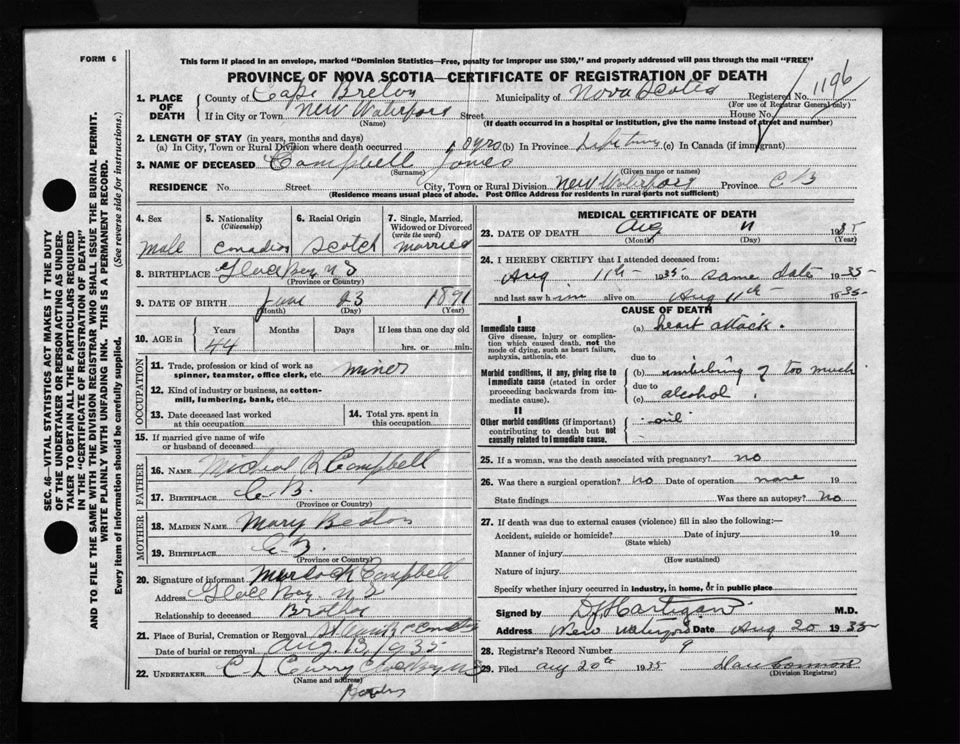 FORM 6
This form if placed in an envelope, marked "Dominion Statistics—Free, penalty for improper use $300," and properly addressed will pass through the mail "FREE"
PROVINCE OF NOVA SCOTIA—CERTIFICATE OF REGISTRATION OF DEATH
1. PLACE OF DEATH County of Cape Breton Municipality of Nova Scotia Registered No. 1196
(For use of Registrar General only)
If in City or Town New Waterford Street House No.
(Name) (If death occurred in a hospital or institution, give the name instead of street and number)
2. LENGTH OF STAY (in years, months and days)
(a) In City, Town or Rural Division where death occurred yrs (b) In Province Lifetime (c) In Canada (if immigrant)
3. NAME OF DECEASED Campbell James
(Surname) (Given name or names)
RESIDENCE No. Street City, Town or Rural Division New Waterford Province C B
(Residence means usual place of abode. Post Office Address for residents in rural parts not sufficient)
4. Sex male
5. Nationality (Citizenship) Canadian
6. Racial Origin Scotch
7. Single, Married, Widowed or Divorced (write the word) married
8. BIRTHPLACE Glace Bay N S
(Province or Country)
9. DATE OF BIRTH June 23 1891
(Month) (Day) (Year)
10. AGE in Years Months Days If less than one day old
44 hrs. or min.
OCCUPATION
11. Trade, profession or kind of work as spinner, teamster, office clerk, etc. miner
12. Kind of industry or business, as cotton-mill, lumbering, bank, etc.
13. Date deceased last worked at this occupation
14. Total yrs. spent in this occupation
15. If married give name of wife or husband of deceased
FATHER
16. NAME Michael R Campbell
17. BIRTHPLACE C. B.
(Province or Country)
MOTHER
18. MAIDEN NAME Mary Beaton
19. BIRTHPLACE C. B.
(Province or Country)
20. Signature of informant Murdoch Campbell
Address Glace Bay N S
Relationship to deceased Brother
21. Place of Burial, Cremation or Removal
Date of burial or removal Aug. 13, 1935
22. UNDERTAKER C L Curry Glace Bay N S
(Name and address)
MEDICAL CERTIFICATE OF DEATH
23. DATE OF DEATH Aug 11 1935
(Month) (Day) (Year)
24. I HEREBY CERTIFY that I attended deceased from:
Aug 11th 1935 to same date 1935
and last saw him alive on Aug 11th 1935
CAUSE OF DEATH
I
Immediate cause
Give disease, injury or complication which caused death, not the mode of dying, such as heart failure, asphyxia, asthenia, etc.
(a) heart attack.
due to
Morbid conditions, if any, giving rise to immediate cause (stated in order proceeding backwards from immediate cause).
(b) imbibing of too much
due to
(c) alcohol.
II
Other morbid conditions (if important) contributing to death but not causally related to immediate cause.
25. If a woman, was the death associated with pregnancy? no
26. Was there a surgical operation? no Date of operation none 19
State findings Was there an autopsy? No
27. If death was due to external causes (violence) fill in also the following:—
Accident, suicide or homicide? Date of injury 19
(State which)
Manner of injury
(How sustained)
Nature of injury
Specify whether injury occurred in industry, in home, or in public place
Signed by D J Hartigan M.D.
Address New Waterford Date Aug 20 1935
28. Registrar's Record Number 9
29. Filed Aug 20th 1935
(Division Registrar)
SEC. 46—VITAL STATISTICS ACT MAKES IT THE DUTY OF THE UNDERTAKER OR PERSON ACTING AS UNDERTAKER TO OBTAIN ALL THE PARTICULARS REQUIRED IN THE "CERTIFICATE OF REGISTRATION OF DEATH"
AND TO FILE THE SAME WITH THE DIVISION REGISTRAR WHO SHALL ISSUE THE BURIAL PERMIT.
WRITE PLAINLY WITH UNFADING INK. THIS IS A PERMANENT RECORD.
Every item of information should be carefully supplied. (See reverse side for instructions.)